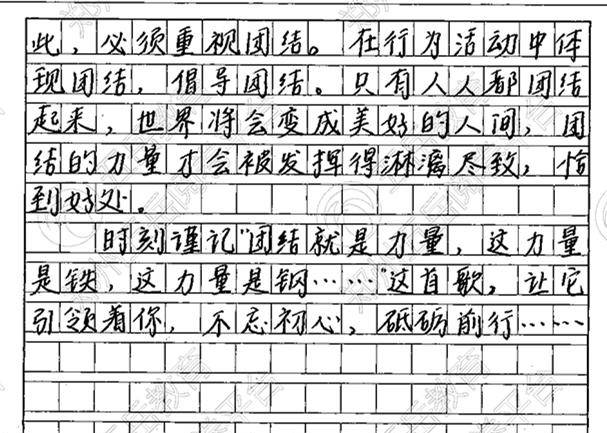 此，必须重视团结。在行为活动中体
现团结，倡导团结。只有人人都团结
起来，世界将会变成美好的人间，团
结的力量才会被发挥得淋漓尽致，恰
到好处。
时刻谨记"团结就是力量，这力量
是铁，这力量是钢……"这首歌，让它
引领着你，不忘初心，砥砺前行……